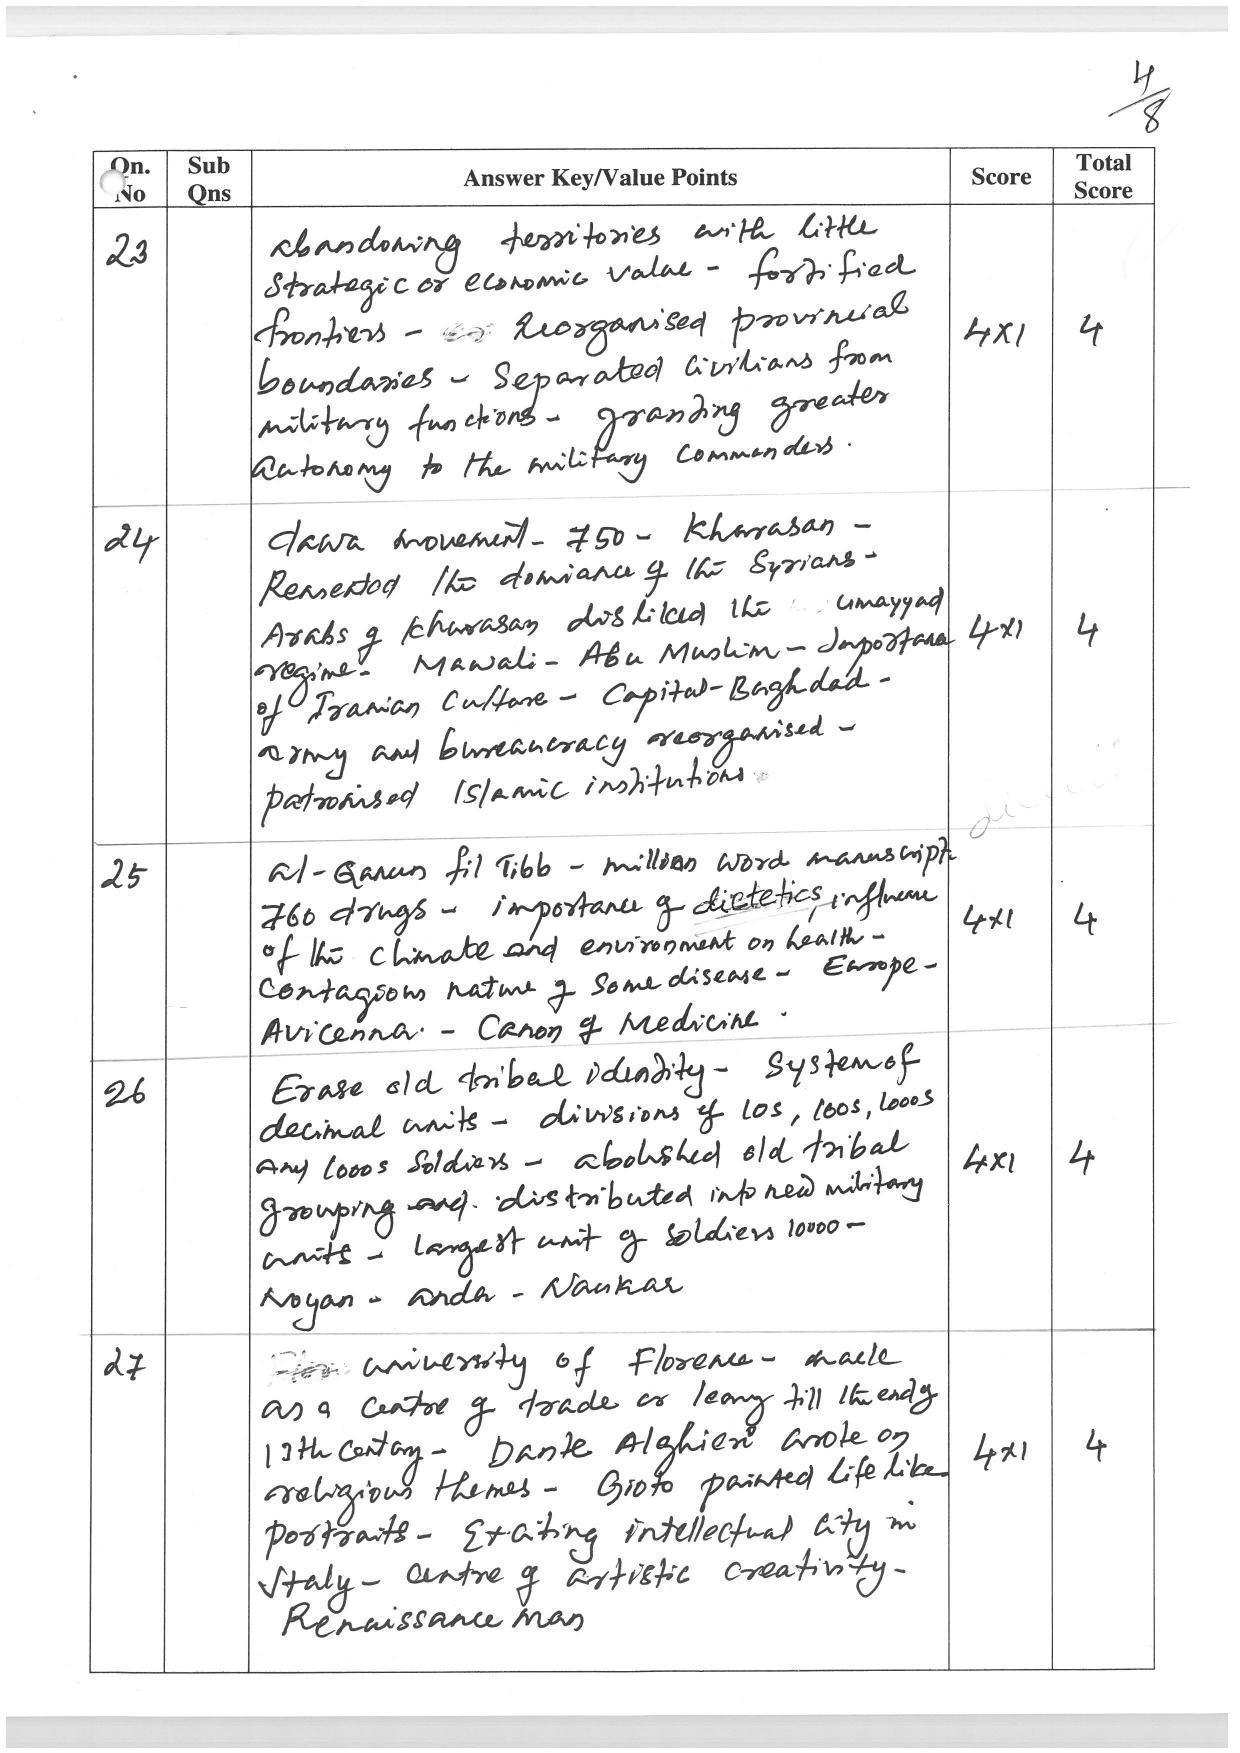 4/8
Qn. No
Sub Qns
Answer Key/Value Points
Score
Total Score
23
abandoning territories with little
Strategic or economic value - fortified
frontiers - Reorganised provincial
boundaries - Separated civilians from
military functions - granting greater
autonomy to the military commanders.
4x1
4
24
dawa movement - 750 - Khurasan -
the dominance of the Syrians -
Arabs of Khurasan disliked the umayyad
regime - Mawali - Abu Muslim - Importance
of Iranian Culture - Capital - Baghdad -
army and bureaucracy reorganised -
patronised Islamic institutions.
4x1
4
25
al-Qanun fil Tibb - million word manuscript
760 drugs - importance of dietetics, influence
of the climate and environment on health -
contagious nature of some disease - Europe -
Avicenna. - Canon of Medicine.
4x1
4
26
Erase old tribal identity - System of
decimal units - divisions of 10s, 100s, 1000s
and 10000s Soldiers - abolished old tribal
grouping and distributed into new military
units - largest unit of soldiers 10000 -
Noyan - anda - Naukar
4x1
4
27
university of Florence - made
as a centre of trade or till the end of
13th century - Dante Alghieri wrote on
religious themes - Gioto painted life like
portraits - Exciting intellectual city in
Italy - centre of artistic creativity -
Renaissance man
4x1
4